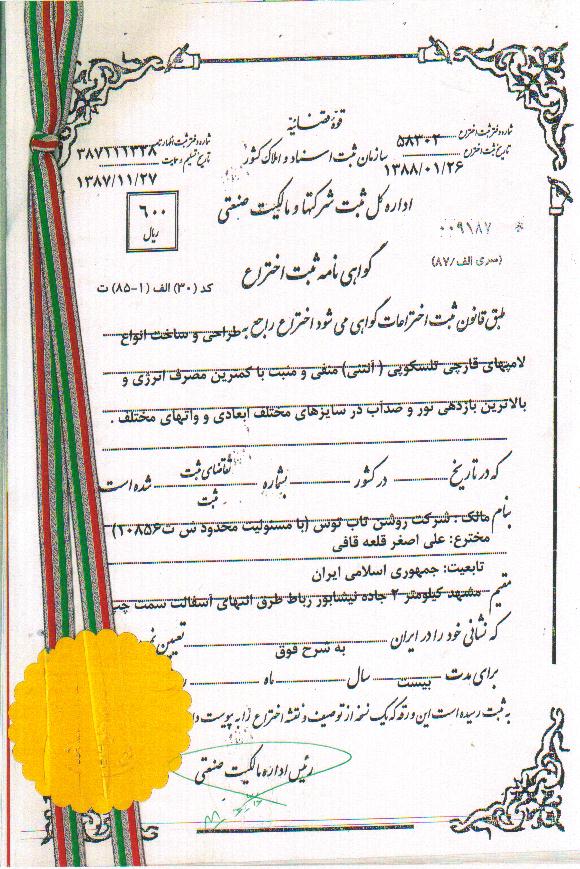 قوه قضائیه
شماره دفتر ثبت اختراع ۵۸۳۰۲
شماره دفتر ثبت اظهارنامه ۳۸۷۱۱۱۳۳۸
سازمان ثبت اسناد و املاک کشور
تاریخ ثبت اختراع ۱۳۸۸/۰۱/۲۶
تاریخ تسلیم ۱۳۸۷/۱۱/۲۷
اداره کل ثبت شرکتها و مالکیت صنعتی
۶۰۰
ریال
۰۰۹۱۸۷
(سری الف/۸۷)
گواهی نامه ثبت اختراع
کد (۳۰) الف (۱-۸۵) ت
طبق قانون ثبت اختراعات گواهی می شود اختراع راجع به طراحی و ساخت انواع
لامپهای قارچی تلسکوپی ( آنتنی) منفی و مثبت با کمترین مصرف انرژی و
بالاترین بازدهی نور و ضدآب در سایزهای مختلف ابعادی و واتهای مختلف .
که در تاریخ در کشور بشماره تقاضای ثبت شده است
ثبت
بنام مالک : شرکت روشن تاب توس (با مسئولیت محدود ش ت۱۰۸۵۶)
مخترع: علی اصغر قلعه قافی
تابعیت: جمهوری اسلامی ایران
مقیم مشهد کیلومتر ۲ جاده نیشابور رباط طرق انتهای آسفالت سمت چپ
که نشانی خود را در ایران به شرح فوق تعیین
برای مدت بیست سال ماه
به ثبت رسیده است این ورقه که یک نسخه از توصیف و نقشه اختراع را به پیوست
رئیس اداره مالکیت صنعتی